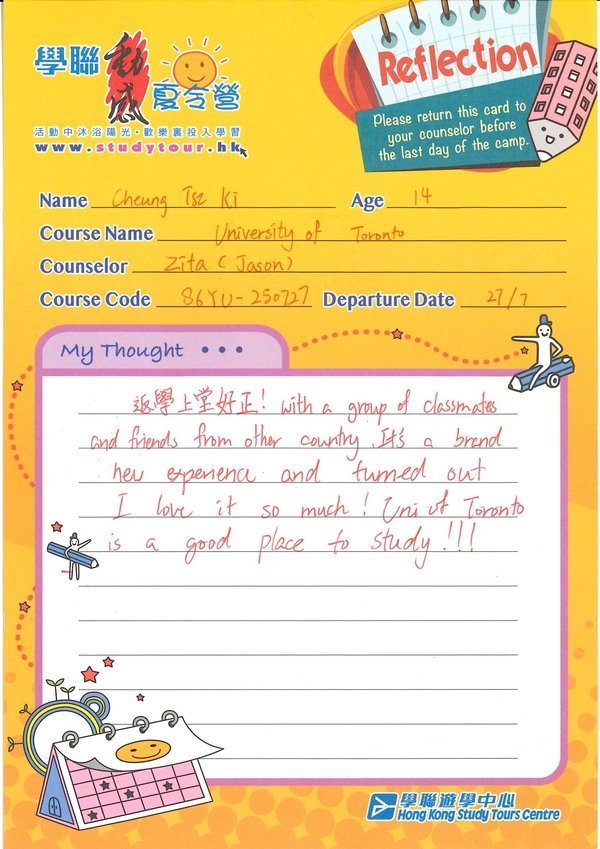 學聯 動感 夏令營
活動中沐浴陽光・歡樂裏投入學習
www.studytour.hk
Reflection
Please return this card to
your counselor before
the last day of the camp.
Name Cheung Tsz Ki Age 14
Course Name University of Toronto
Counselor Zita (Jason)
Course Code 86YU-250727 Departure Date 27/7
My Thought • • •
返學上堂好正! With a group of classmates
and friends from other country. It's a brand
new experience and turned out
I love it so much! Uni of Toronto
is a good place to study!!!
學聯遊學中心
Hong Kong Study Tours Centre